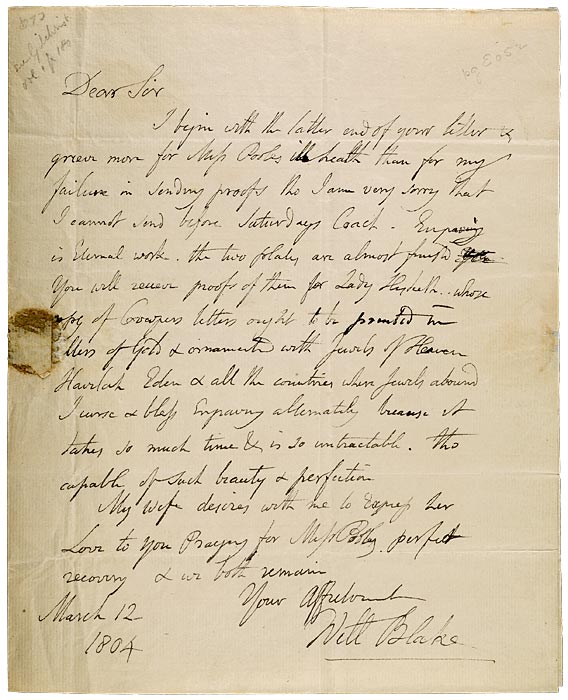 Dear Sir
I begin with the latter end of your letter &
grieve more for Miss Pooles ill health than for my
failure in sending proofs tho I am very sorry that
I cannot send before Saturdays Coach. Engraving
is Eternal work. the two plates are almost finishd
You will receive proofs of them for Lady Hesketh.. whose
opy of Cowpers letters ought to be printed in
tters of Gold & ornamented with Jewels of Heaven
Havilah Eden & all the countries where Jewels abound
I curse & bless Engraving alternately because it
takes so much time & is so untractable. tho
capable of such beauty & perfection
My wife desires with me to Express her
Love to you Praying for Miss Pooles perfect
recovery & we both remain
Your Affectionate
March 12 Will Blake
1804